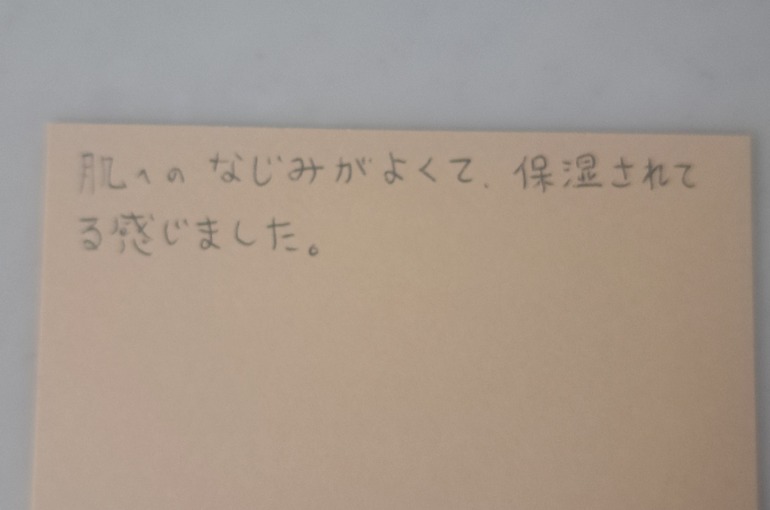 肌へのなじみがよくて、保湿されて
る感じました。